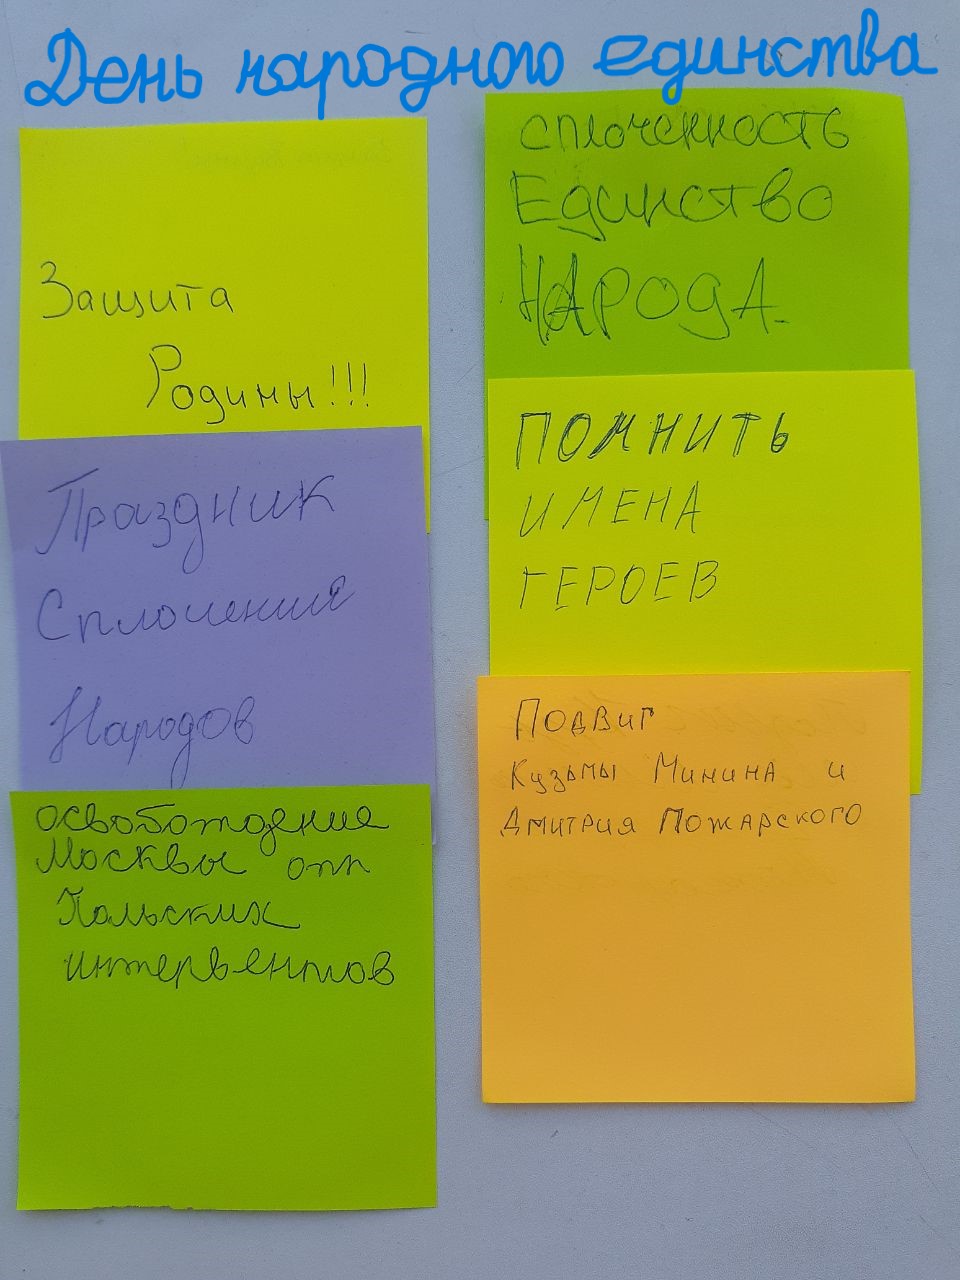 День народного единства
Защита
Родины!!!
Праздник
Сплочения
Народов
освобождение
Москвы от
Польских
интервентов
сплоченность
Единство
НАРОДА.
ПОМНИТЬ
ИМЕНА
ГЕРОЕВ
Подвиг
Кузьмы Минина и
Дмитрия Пожарского